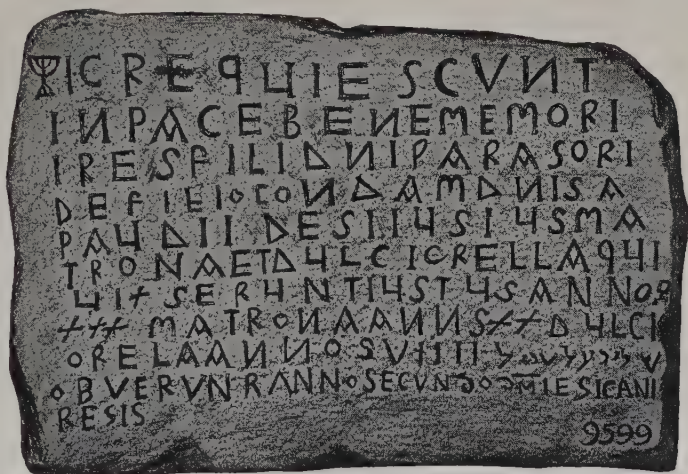 IC REQUIESCVNT
INPACEBENEMEMORI
IRESFILIDNIPARASORI
DEFIEIOCONDAMDNISA
PAUDII DESIIUSIUSMA
TRONAETDULCICRELLAQUI
UIXSERUNTIUSTUSANNOS
XXX MATRONAANNSXXDULCI
ORELAANNOSVIIII
OBVERVNRANNOSECVNDODMIESICANI
RESIS
9599